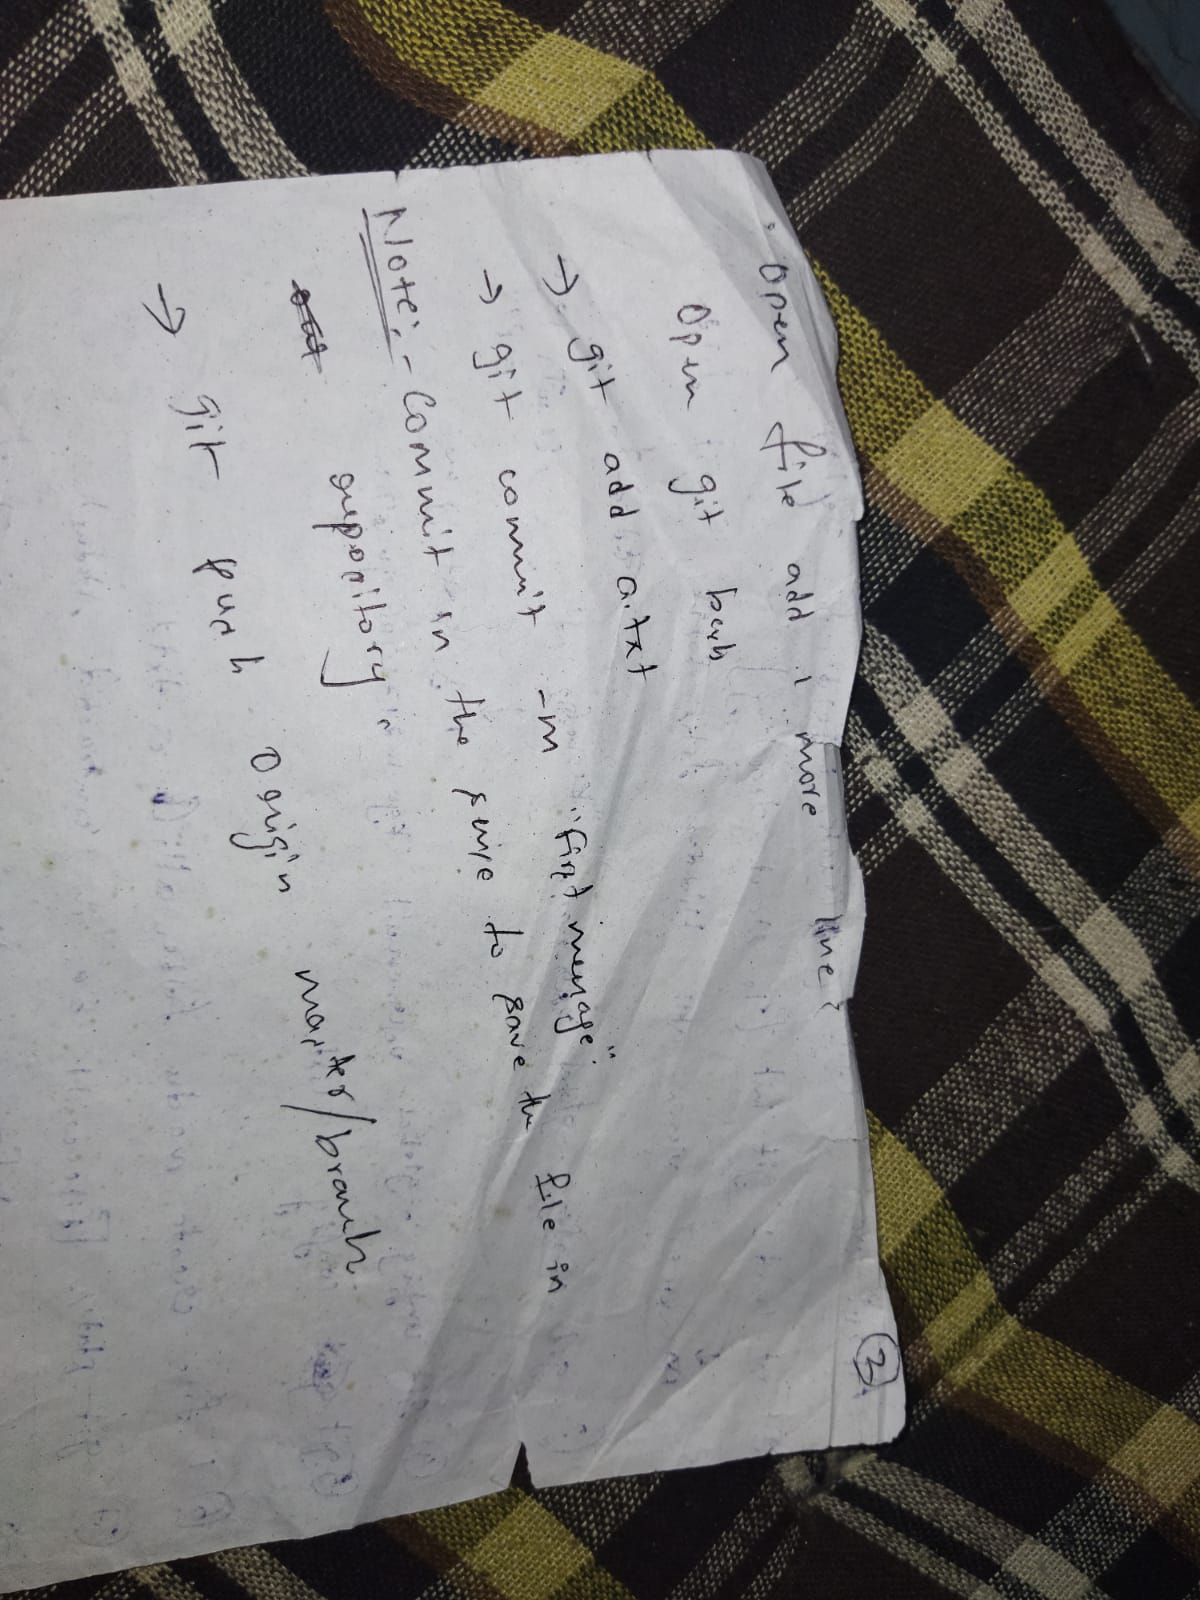 2
. Open file add 1 more line
Open git bash
→ git add a.txt
→ git commit -m "first message"
Note:- Commit in the to save the file in
repository
→ git push origin master/branch